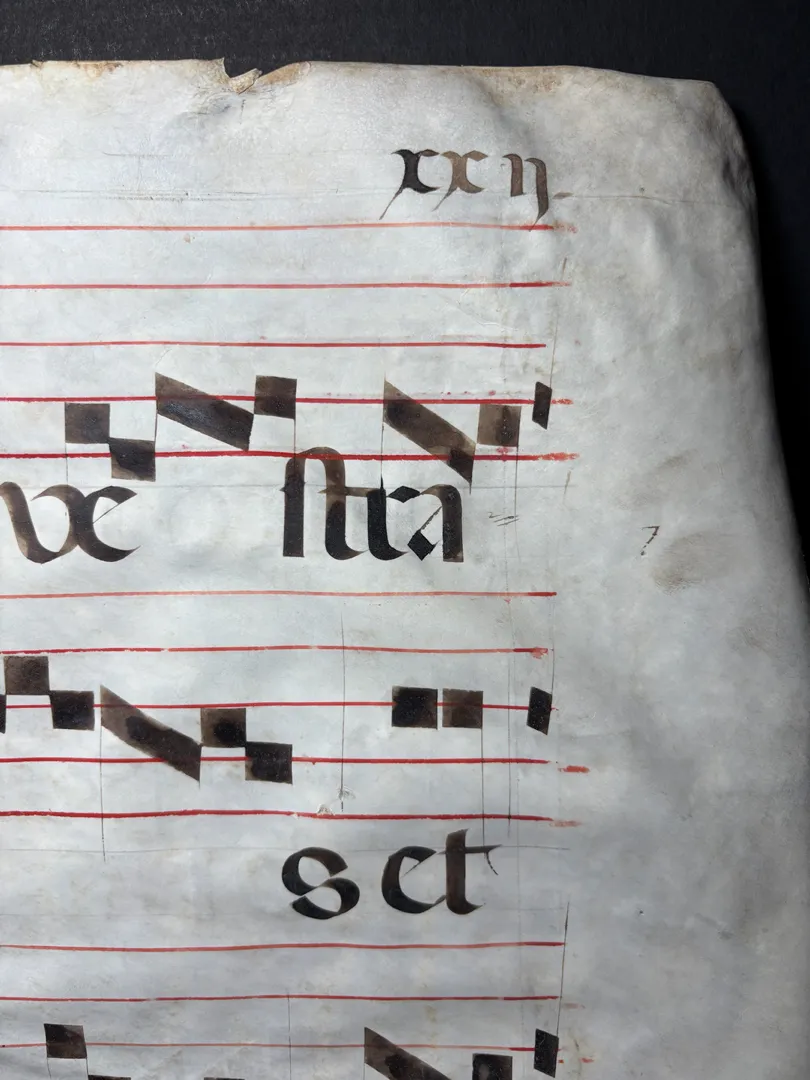 xxij
ve stra
s et